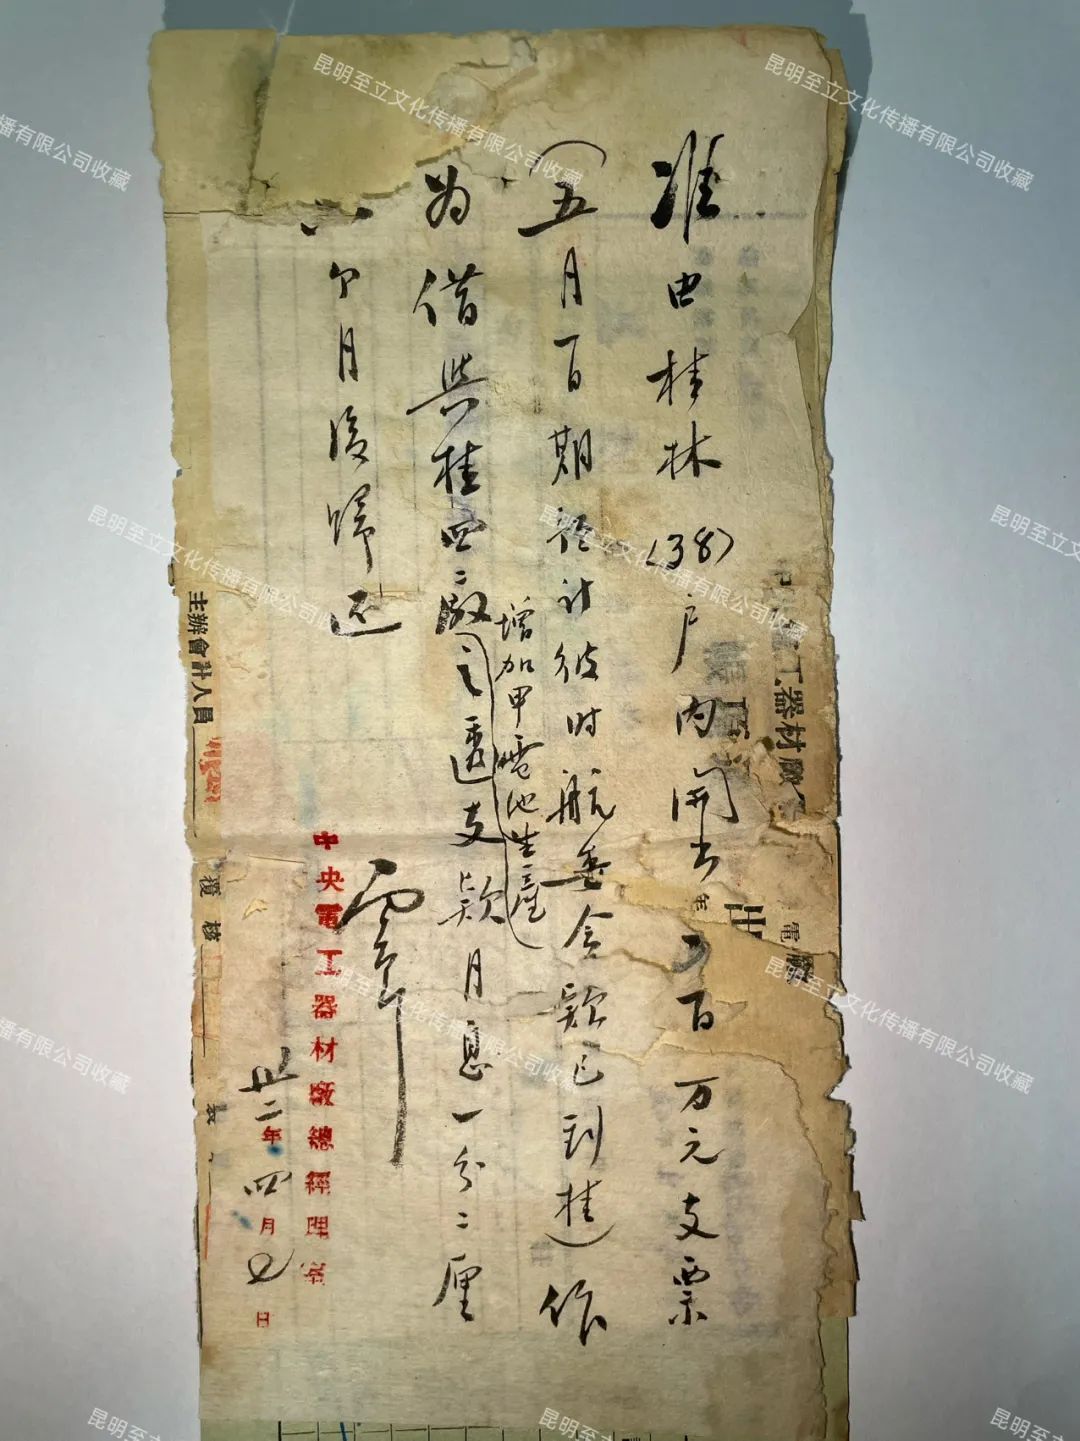 准由桂林(38)户内開出 百万元支票
(五月百期 計彼时航委会款已到桂)作
增加甲電池生產
为借與桂四二廠之透支款月息一分二厘
六个月後歸还
中央電工器材廠總經理室
卅二年四月 日
主辦會計人員
覆核
工器材廠
電
昆明至立文化传播有限公司收藏
昆明至立文化传播有限公司收藏
昆明至立文化传播有限公司收藏
昆明至立文化传播有限公司收藏
昆明至立文化传播有限公司收藏
昆明至立文化传播有限公司收藏